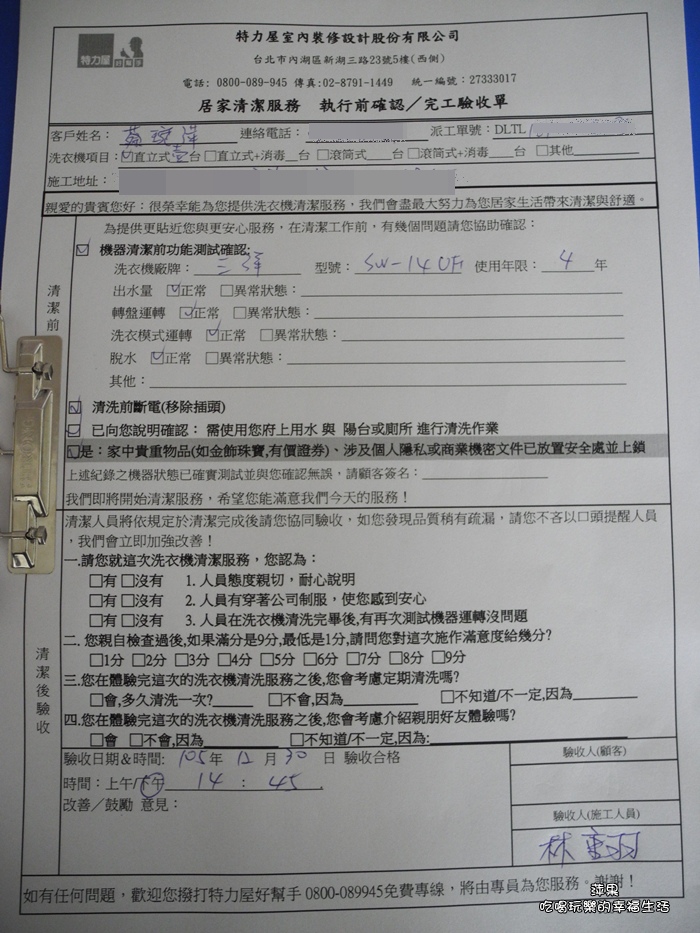 特力屋 好幫手
特力屋室內裝修設計股份有限公司
台北市內湖區新湖三路23號5樓(西側)
電話: 0800-089-945 傳真:02-8791-1449 統一編號:27333017
居家清潔服務 執行前確認/完工驗收單
客戶姓名: 連絡電話: 派工單號:DLTL
洗衣機項目:☑直立式壹台 □直立式+消毒__台 □滾筒式__台 □滾筒式+消毒__台 □其他
施工地址:
親愛的貴賓您好:很榮幸能為您提供洗衣機清潔服務,我們會盡最大努力為您居家生活帶來清潔與舒適。
清潔前
為提供更貼近您與更安心服務,在清潔工作前,有幾個問題請您協助確認:
☑ 機器清潔前功能測試確認:
洗衣機廠牌: 三洋 型號: SW-14 使用年限: 4 年
出水量 ☑正常 □異常狀態:
轉盤運轉 ☑正常 □異常狀態:
洗衣模式運轉 ☑正常 □異常狀態:
脫水 ☑正常 □異常狀態:
其他:
☑ 清洗前斷電(移除插頭)
☑ 已向您說明確認: 需使用您府上用水 與 陽台或廁所 進行清洗作業
☑是:家中貴重物品(如金飾珠寶,有價證券)、涉及個人隱私或商業機密文件已放置安全處並上鎖
上述紀錄之機器狀態已確實測試並與您確認無誤,請顧客簽名:
我們即將開始清潔服務,希望您能滿意我們今天的服務!
清潔後驗收
清潔人員將依規定於清潔完成後請您協同驗收,如您發現品質稍有疏漏,請您不吝以口頭提醒人員
,我們會立即加強改善!
一.請您就這次洗衣機清潔服務,您認為:
□有 □沒有 1. 人員態度親切,耐心說明
□有 □沒有 2. 人員有穿著公司制服,使您感到安心
□有 □沒有 3. 人員在洗衣機清洗完畢後,有再次測試機器運轉沒問題
二. 您親自檢查過後,如果滿分是9分,最低是1分,請問您對這次施作滿意度給幾分?
□1分 □2分 □3分 □4分 □5分 □6分 □7分 □8分 □9分
三.您在體驗完這次的洗衣機清洗服務之後,您會考慮定期清洗嗎?
□會,多久清洗一次?______ □不會,因為______ □不知道/不一定,因為______
四.您在體驗完這次的洗衣機清洗服務之後,您會考慮介紹親朋好友體驗嗎?
□會 □不會,因為______ □不知道/不一定,因為:______
驗收日期&時間: 105年 12 月 30 日 驗收合格
驗收人(顧客)
時間:上午/下午 14 : 45
改善/鼓勵 意見:
驗收人(施工人員)
如有任何問題,歡迎您撥打特力屋好幫手 0800-089945免費專線,將由專員為您服務。謝謝!
萍果
吃喝玩樂的幸福生活